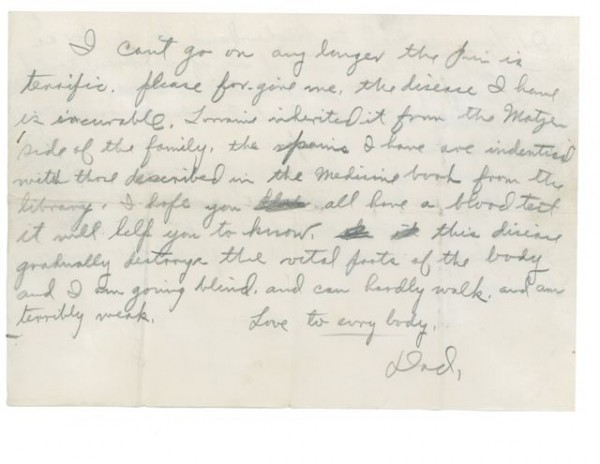 I can't go on any longer the pain is
terrific. please for-give me, the disease I have
is incurable. Lorraine inherited it from the Motzer
side of the family. the spains I have are indentical
with those described in the Medicine book from the
library. I hope you all have a blood test
it will help you to know. this disease
gradually destroys the vital parts of the body
and I am going blind. and can hardly walk. and am
terribly weak. Love to evry body.
Dad,